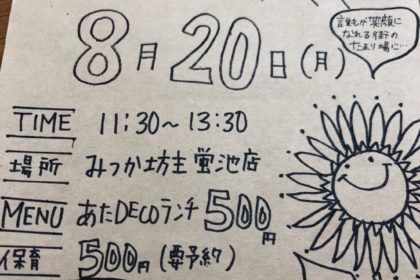 誰もが笑顔に
なれる街の
たまり場に…
8月20日(月)
TIME 11:30~13:30
場所 みつか坊主 蛍池店
MENU あたDECOランチ 500円
保育 500円(要予約)